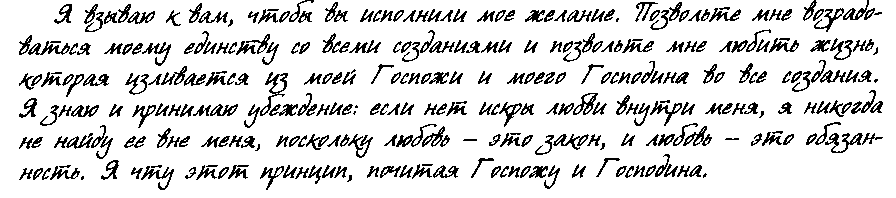 Я взываю к вам, чтобы вы исполнили мое желание. Позвольте мне возрадо-
ваться моему единству со всеми созданиями и позвольте мне любить жизнь,
которая изливается из моей Госпожи и моего Господина во все создания.
Я знаю и принимаю убеждение: если нет искры любви внутри меня, я никогда
не найду ее вне меня, поскольку любовь – это закон, и любовь – это обязан-
ность. Я чту этот принцип, почитая Госпожу и Господина.